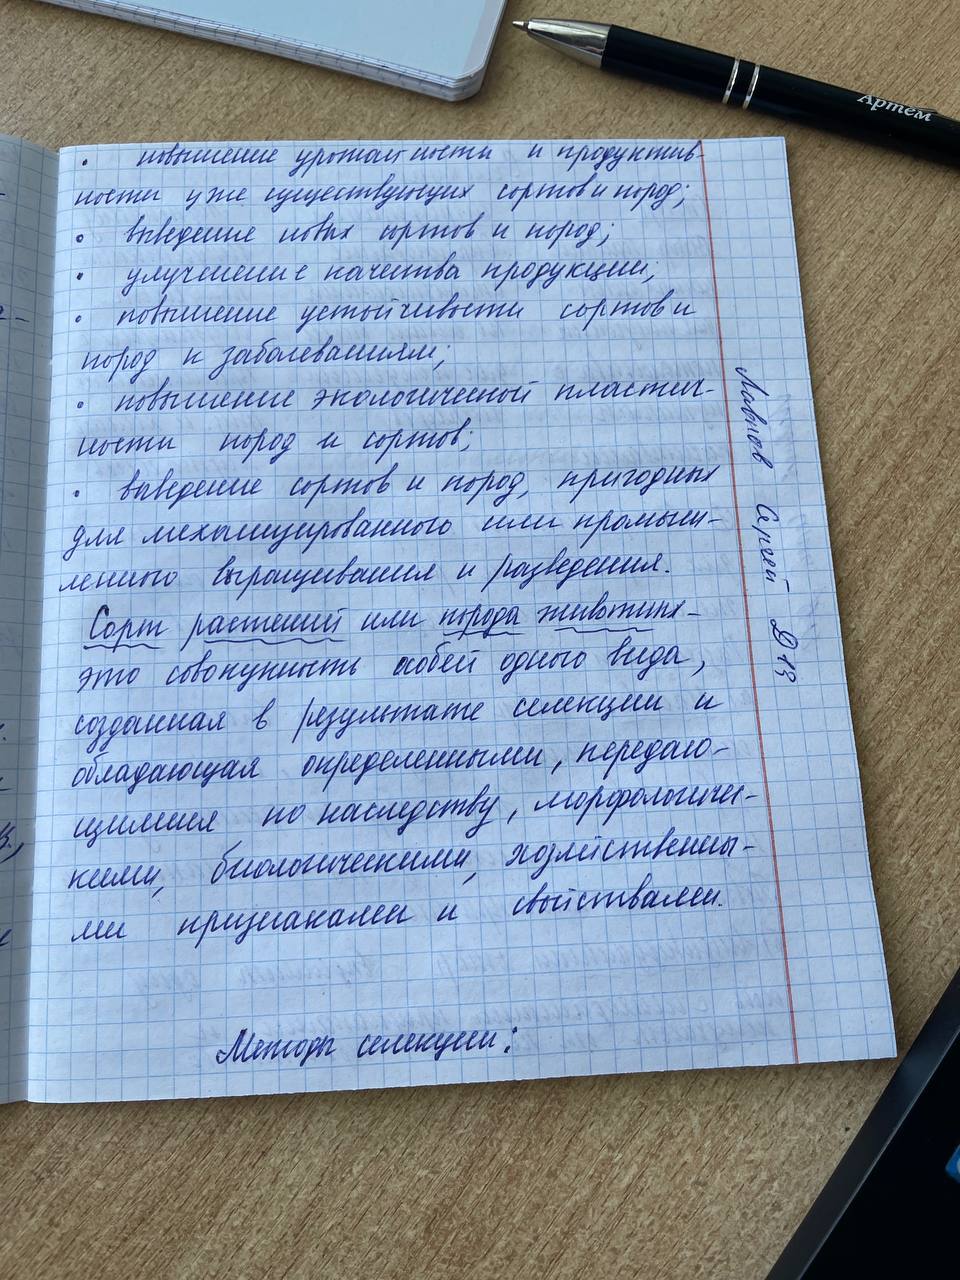 • повышение урожайности и продуктив-
ности уже существующих сортов и пород;
• выведение новых сортов и пород;
• улучшение качества продукции;
• повышение устойчивости сортов и
пород к заболеваниям;
• повышение экологической пластич-
ности пород и сортов;
• выведение сортов и пород, пригодных
для механизированного или промыш-
ленного выращивания и разведения.
Сорт растений или порода животных-
это совокупность особей одного вида,
созданная в результате селекции и
обладающая определенными, передаю-
щимися по наследству, морфологичес-
кими, биологическими, хозяйственны-
ми признаками и свойствами.
Методы селекции:
Сергей
Артём